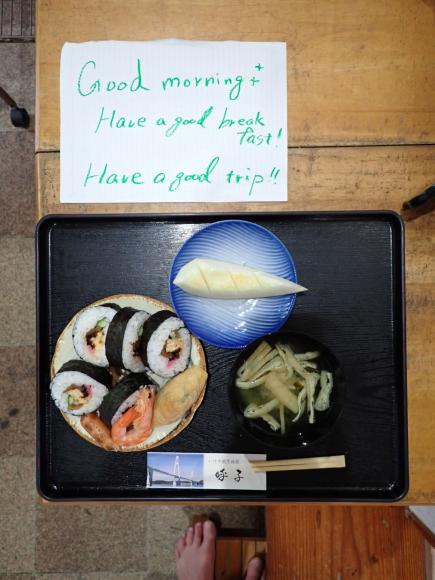 Good morning
Have a good break
fast!
Have a good trip!!
呼子